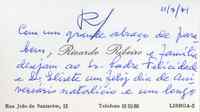 11/3/71
R/
Com um grande abraço de para
bens, Ricardo Ribeiro e família
desejam ao Sr. Padre Felicidade
e D. Elisete um feliz dia de Ani-
versario natalicio e um longo
Rua João do Nascimento, 13 Telefone LISBOA-5